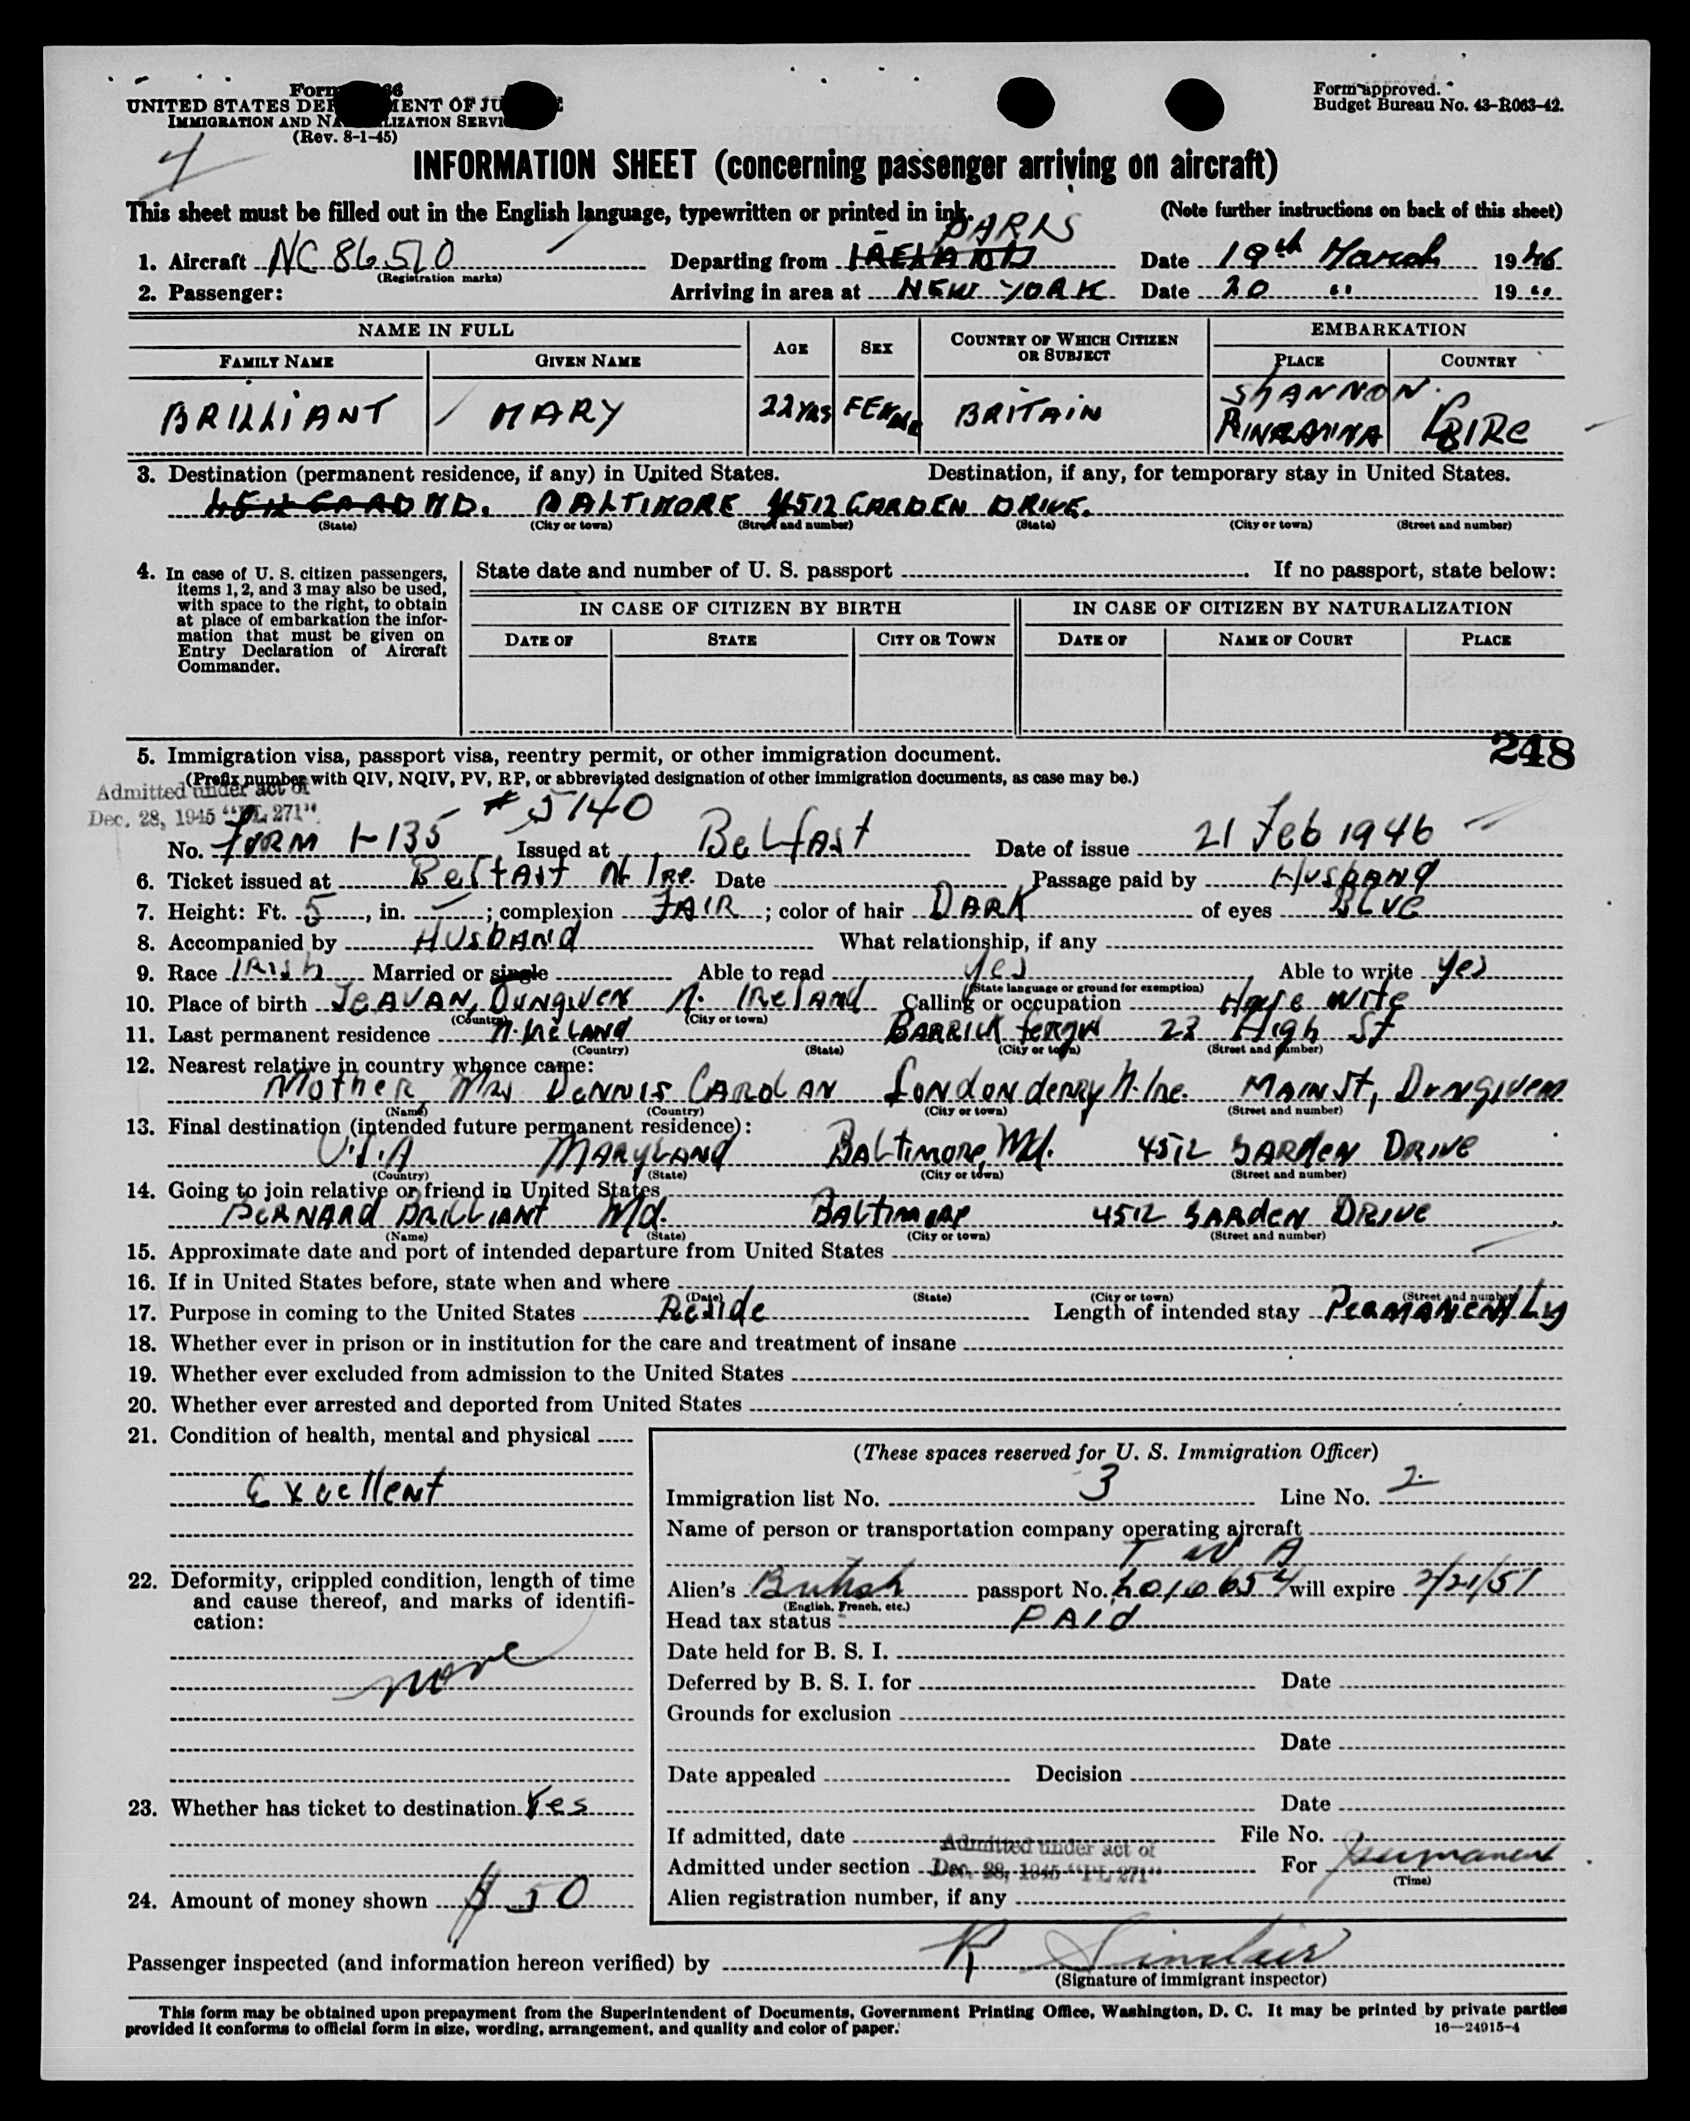 Form
UNITED STATES DEPARTMENT OF JUSTICE
IMMIGRATION AND NATURALIZATION SERVICE
(Rev. 8-1-45)
Form approved.
Budget Bureau No. 43-R063-42.
4
INFORMATION SHEET (concerning passenger arriving on aircraft)
This sheet must be filled out in the English language, typewritten or printed in ink. (Note further instructions on back of this sheet)
PARIS
1. Aircraft NC 86510 Departing from IRELAND Date 19th March 1946
(Registration marks)
2. Passenger: Arriving in area at NEW YORK Date 20 " 19 "
NAME IN FULL AGE SEX COUNTRY OF WHICH CITIZEN OR SUBJECT EMBARKATION
FAMILY NAME GIVEN NAME PLACE COUNTRY
SHANNON
BRILLIANT MARY 22 YRS FEMALE BRITAIN RINEANNA EIRE
3. Destination (permanent residence, if any) in United States. Destination, if any, for temporary stay in United States.
MD. BALTIMORE 4512 GARDEN DRIVE.
(State) (City or town) (Street and number) (State) (City or town) (Street and number)
4. In case of U. S. citizen passengers, items 1, 2, and 3 may also be used, with space to the right, to obtain at place of embarkation the information that must be given on Entry Declaration of Aircraft Commander.
State date and number of U. S. passport If no passport, state below:
IN CASE OF CITIZEN BY BIRTH IN CASE OF CITIZEN BY NATURALIZATION
DATE OF STATE CITY OR TOWN DATE OF NAME OF COURT PLACE
248
5. Immigration visa, passport visa, reentry permit, or other immigration document.
(Prefix number with QIV, NQIV, PV, RP, or abbreviated designation of other immigration documents, as case may be.)
Admitted under act of
Dec. 28, 1945 "PL 271"
# 5140
No. FORM I-135 Issued at Belfast Date of issue 21 Feb 1946
6. Ticket issued at Belfast N. Ire. Date Passage paid by Husband
7. Height: Ft. 5, in. –; complexion FAIR; color of hair DARK of eyes BLUE
8. Accompanied by Husband What relationship, if any
9. Race IRish Married or single Able to read yes Able to write yes
(State language or ground for exemption)
10. Place of birth TEAVAN, DUNGIVEN N. IReland Calling or occupation House wife
(Country) (City or town)
11. Last permanent residence N. IReLAND 23 High St
(Country) (State) (City or town) (Street and number)
12. Nearest relative in country whence came:
Mother, Mrs DENNIS CAROLAN LONDONderry N. Ire. MAIN St, DUNGIVEN
(Name) (Country) (City or town) (Street and number)
13. Final destination (intended future permanent residence):
U.S.A MARYLAND BALtimore, Md. 4512 GARDEN DRIVE
(Country) (State) (City or town) (Street and number)
14. Going to join relative or friend in United States
BERNARD BRILLIANT Md. BALtimore 4512 GARDEN DRIVE
(Name) (State) (City or town) (Street and number)
15. Approximate date and port of intended departure from United States
16. If in United States before, state when and where
(Date) (State) (City or town) (Street and number)
17. Purpose in coming to the United States Reside Length of intended stay PERMANENtLy
18. Whether ever in prison or in institution for the care and treatment of insane
19. Whether ever excluded from admission to the United States
20. Whether ever arrested and deported from United States
21. Condition of health, mental and physical
Excellent
22. Deformity, crippled condition, length of time and cause thereof, and marks of identification:
none
23. Whether has ticket to destination Yes
24. Amount of money shown $ 50
(These spaces reserved for U. S. Immigration Officer)
Immigration list No. 3 Line No. 2
Name of person or transportation company operating aircraft
T W A
Alien's British passport No. will expire 2/21/51
(English, French, etc.)
Head tax status PAId
Date held for B. S. I.
Deferred by B. S. I. for Date
Grounds for exclusion
Date
Date appealed Decision
Date
If admitted, date File No.
Admitted under section Admitted under act of Dec. 28, 1945 "PL 271" For permanent
(Time)
Alien registration number, if any
Passenger inspected (and information hereon verified) by R Sinclair
(Signature of immigrant inspector)
This form may be obtained upon prepayment from the Superintendent of Documents, Government Printing Office, Washington, D. C. It may be printed by private parties
provided it conforms to official form in size, wording, arrangement, and quality and color of paper.
16—24915-4